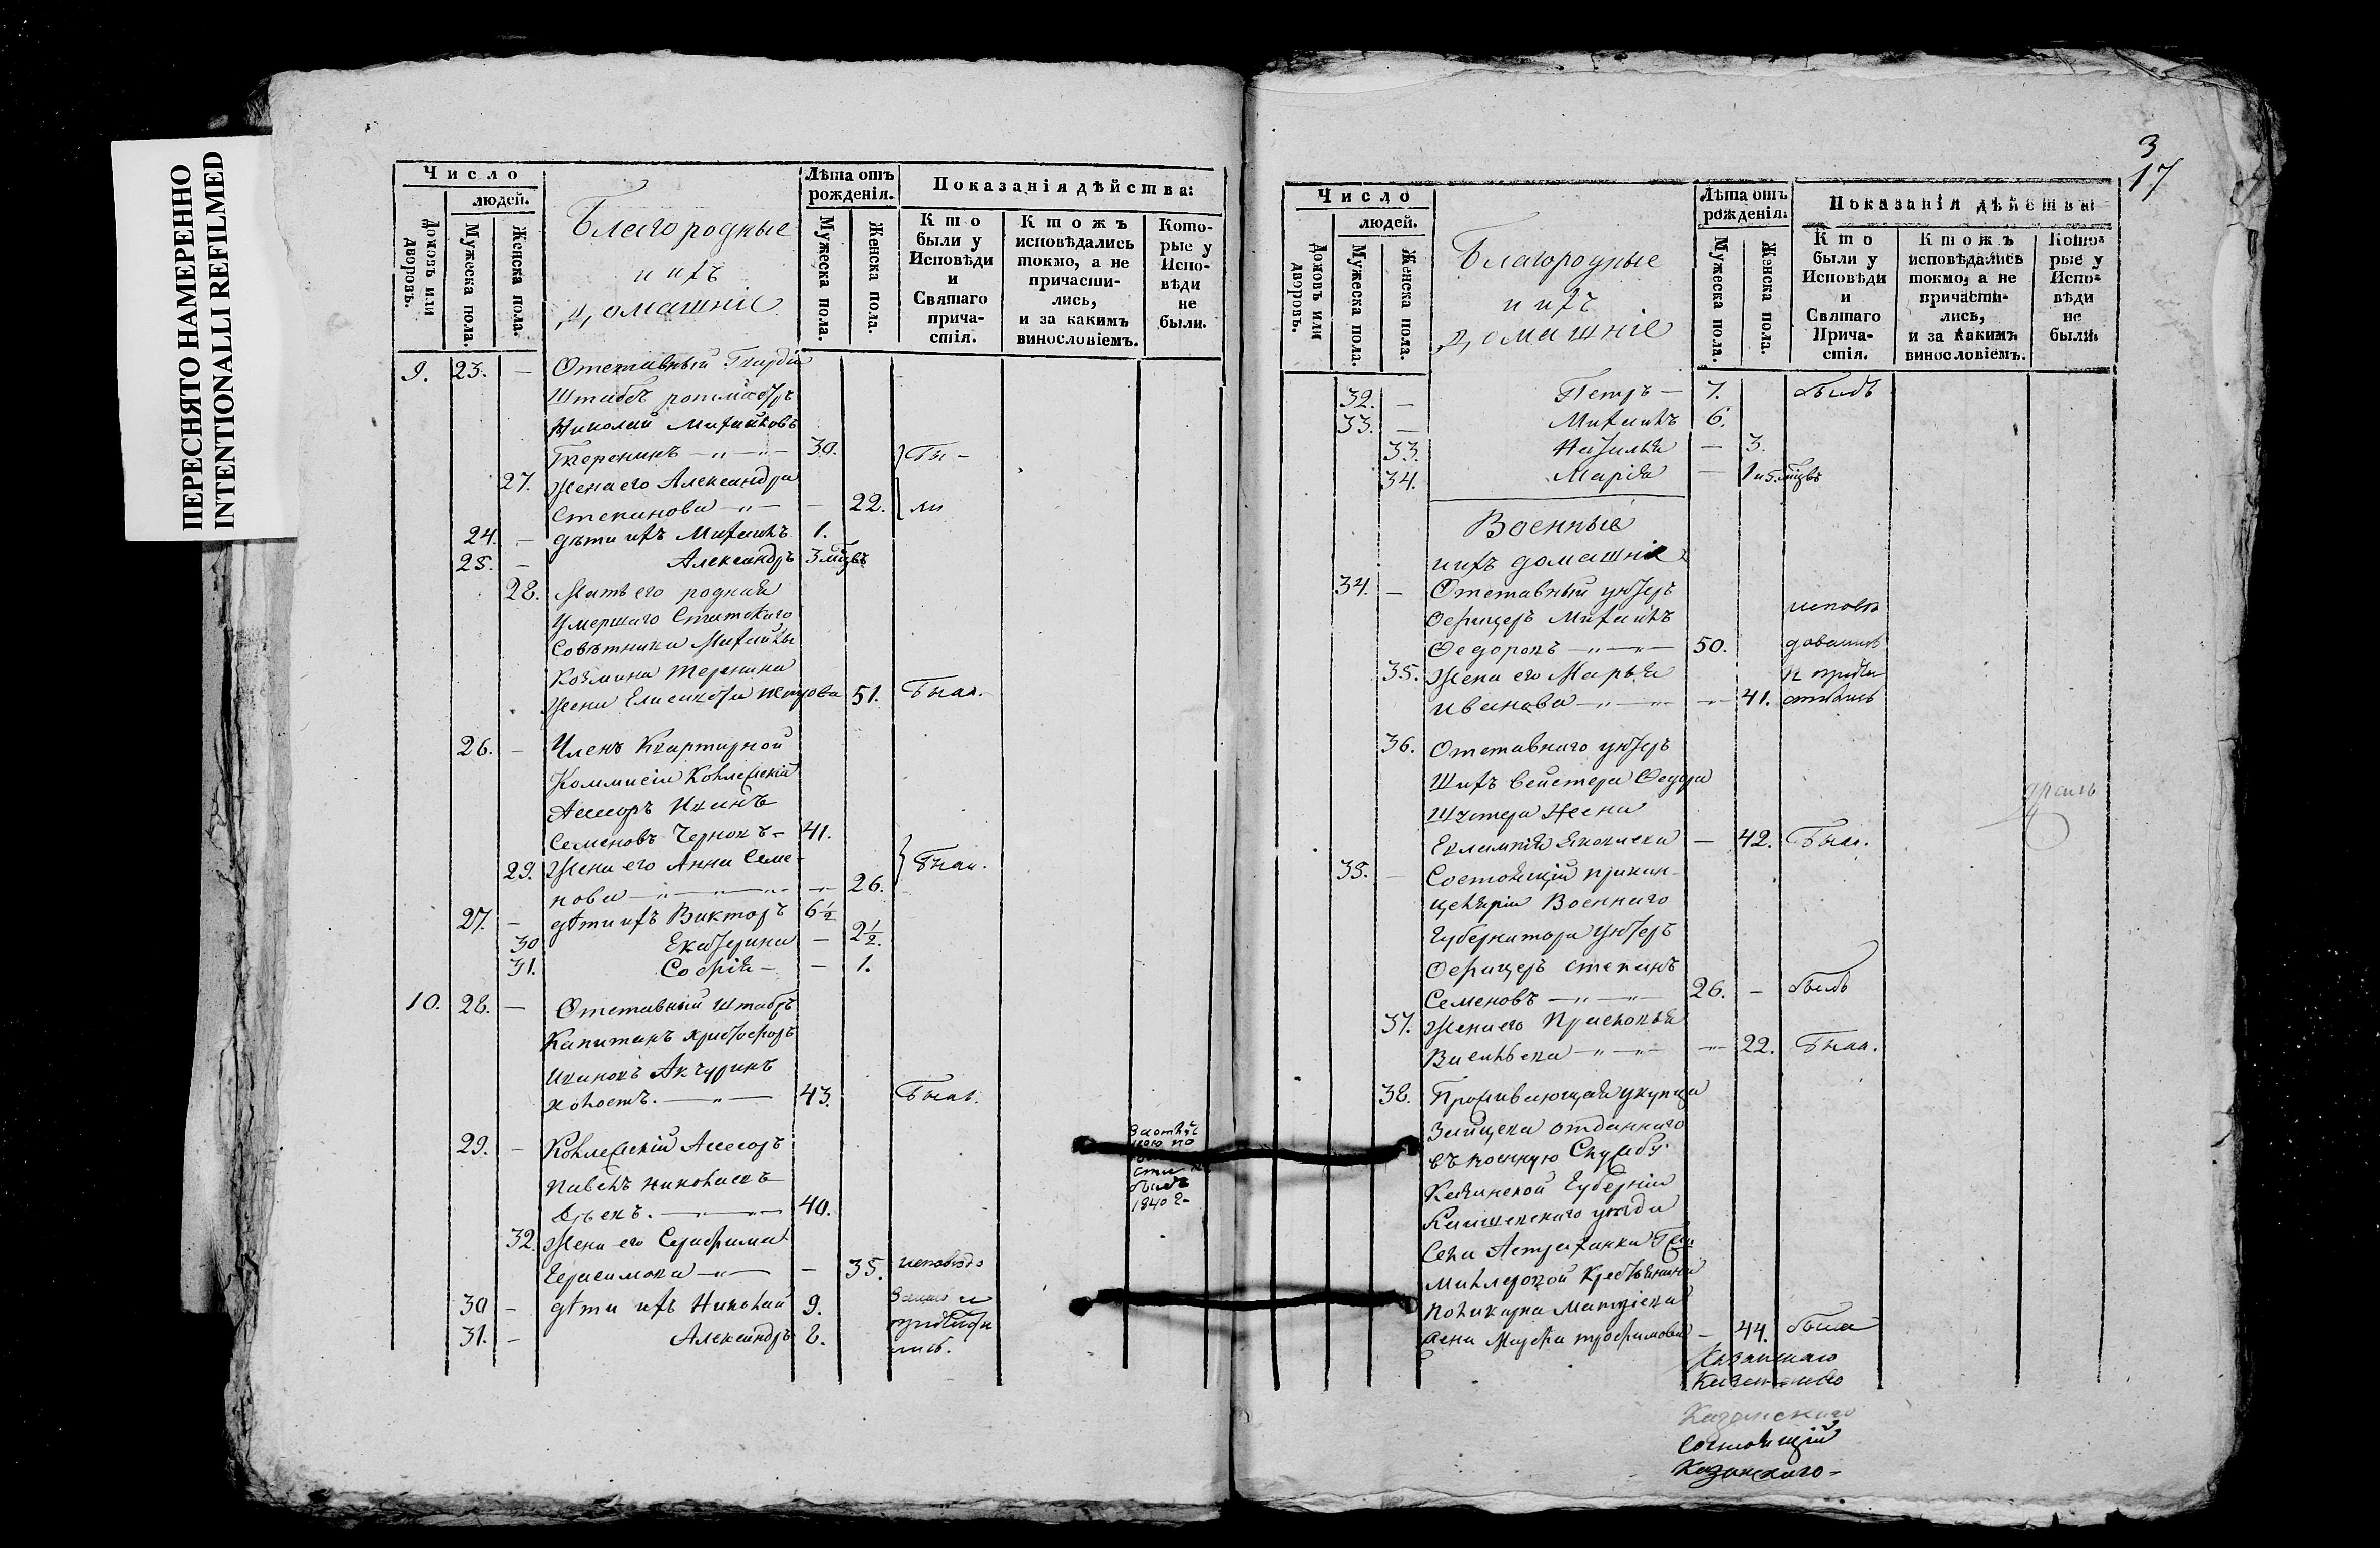 ПЕРЕСНЯТО НАМЕРЕННО
INTENTIONALLI REFILMED
Число
людей.
Домовъ или дворовъ.
Мужеска пола.
Женска пола.
Благородные
и ихъ
домашніе
Лѣта отъ рожденія.
Мужеска пола.
Женска пола.
Показанія дѣйства:
Кто были у Исповѣди и Святаго причастія.
Ктожъ исповѣдались токмо, а не причастились, и за какимъ винословіемъ.
Которые у Исповѣди не были.
9. 23. — Отставный Гвардіи
Штабсъ ротмистръ
Николай Михайловъ
30. Бы-
27. Жена его Александра
Степанова — 22. ли
24. — дѣти ихъ Михаилъ 1.
25. — Александръ 3 мцвъ
28. Мать его родная
Умершаго Статскаго
Совѣтника Михайлы
Козмина
жена Елисавета Петрова 51. Была.
26. — Членъ Квартирной
Коммисіи Коллежскій
Ассесоръ Иванъ
Семеновъ Черновъ — 41.
29. Жена его Анна Семе- Были.
нова — 26.
27. — дѣти ихъ Викторъ 6½
30 Екатерина — 2½.
31. Софія — — 1.
10. 28. — Отставный Штабсъ
Капитанъ Христофоръ
Ивановъ Акчуринъ
холостъ. — 43. Былъ.
29. — Коллежскій Ассесоръ
Павелъ Николаевъ
40.
былъ
1840 г.
32. Жена его Серафима
Герасимова — — 35. исповѣдо
30 — дѣти ихъ Николай 9. вались и
31. — Александръ 8. лись.
3
17
Число
людей.
Домовъ или дворовъ.
Мужеска пола.
Женска пола.
Благородные
и ихъ
домашніе
Лѣта отъ рожденія.
Мужеска пола.
Женска пола.
Показанія дѣйства
Кто были у Исповѣди и Святаго Причастія.
Ктожъ исповѣдались токмо, а не причастились, и за какимъ винословіемъ.
Которые у Исповѣди не были.
32. — Петръ — 7. былъ
33. — Михаилъ 6.
33. Наталья — 3.
34. Марія — 1 и 5. мцвъ
Военные
и ихъ домашніе
34. — Отставный унтеръ
Офицеръ Михаилъ исповѣ
Федоровъ — 50. довались
35. Жена его Марья и приоб
Иванова — 41. щились
36. Отставнаго унтеръ
Шихъ Вейстера Федора
жена
Евлампія Яковлева — 42. Была.
35. — Состоящій при кан-
целяріи Военнаго
Губернатора унтеръ
Офицеръ Степанъ
Семеновъ — 26. — былъ
37. Жена его Прасковья
Васильева — 22. Была.
38. Проживающая у купца
Зайцева отданнаго
въ военную Службу
Казанской Губерніи
Лаишевскаго уѣзда
Села Астраханки
Крестьянина
Поликарпа Матвѣева
жена Марфа Трофимова — 44. была
Казанскаго
Состоящій
Казанскаго-